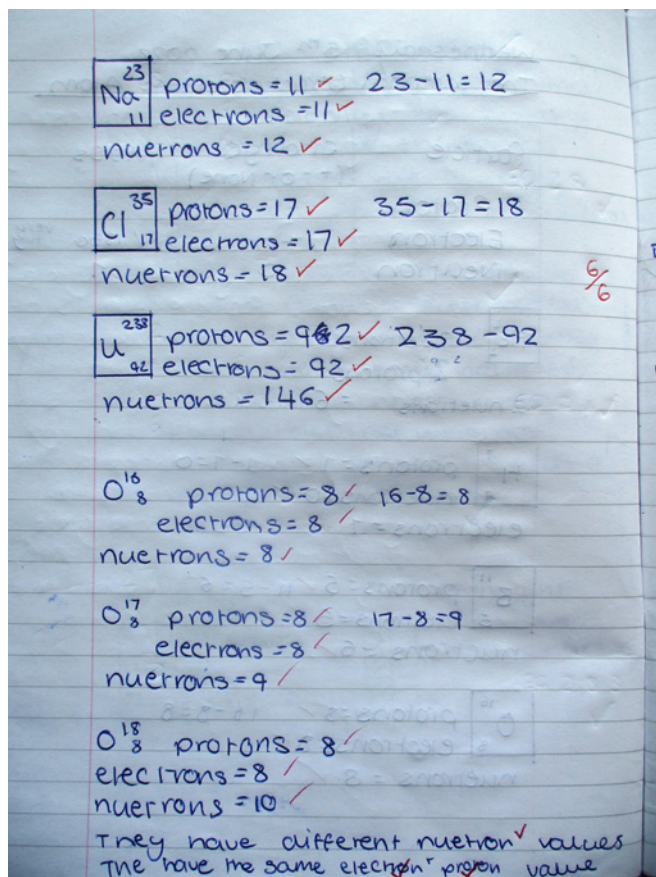 23
Na protons = 11 ✓ 23-11=12
11 electrons = 11 ✓
nuetrons = 12 ✓
35
Cl protons = 17 ✓ 35-17=18
17 electrons = 17 ✓
nuetrons = 18 ✓
6/6
238
U protons = 92 ✓ 238-92
92 electrons = 92 ✓
nuetrons = 146 ✓
16
O 8 protons = 8 ✓ 16-8=8
electrons = 8 ✓
nuetrons = 8 ✓
17
O 8 protons = 8 ✓ 17-8=9
electrons = 8 ✓
nuetrons = 9 ✓
18
O 8 protons = 8 ✓
electrons = 8 ✓
nuetrons = 10 ✓
They have different nuetron ✓ values
The have the same electron proton value